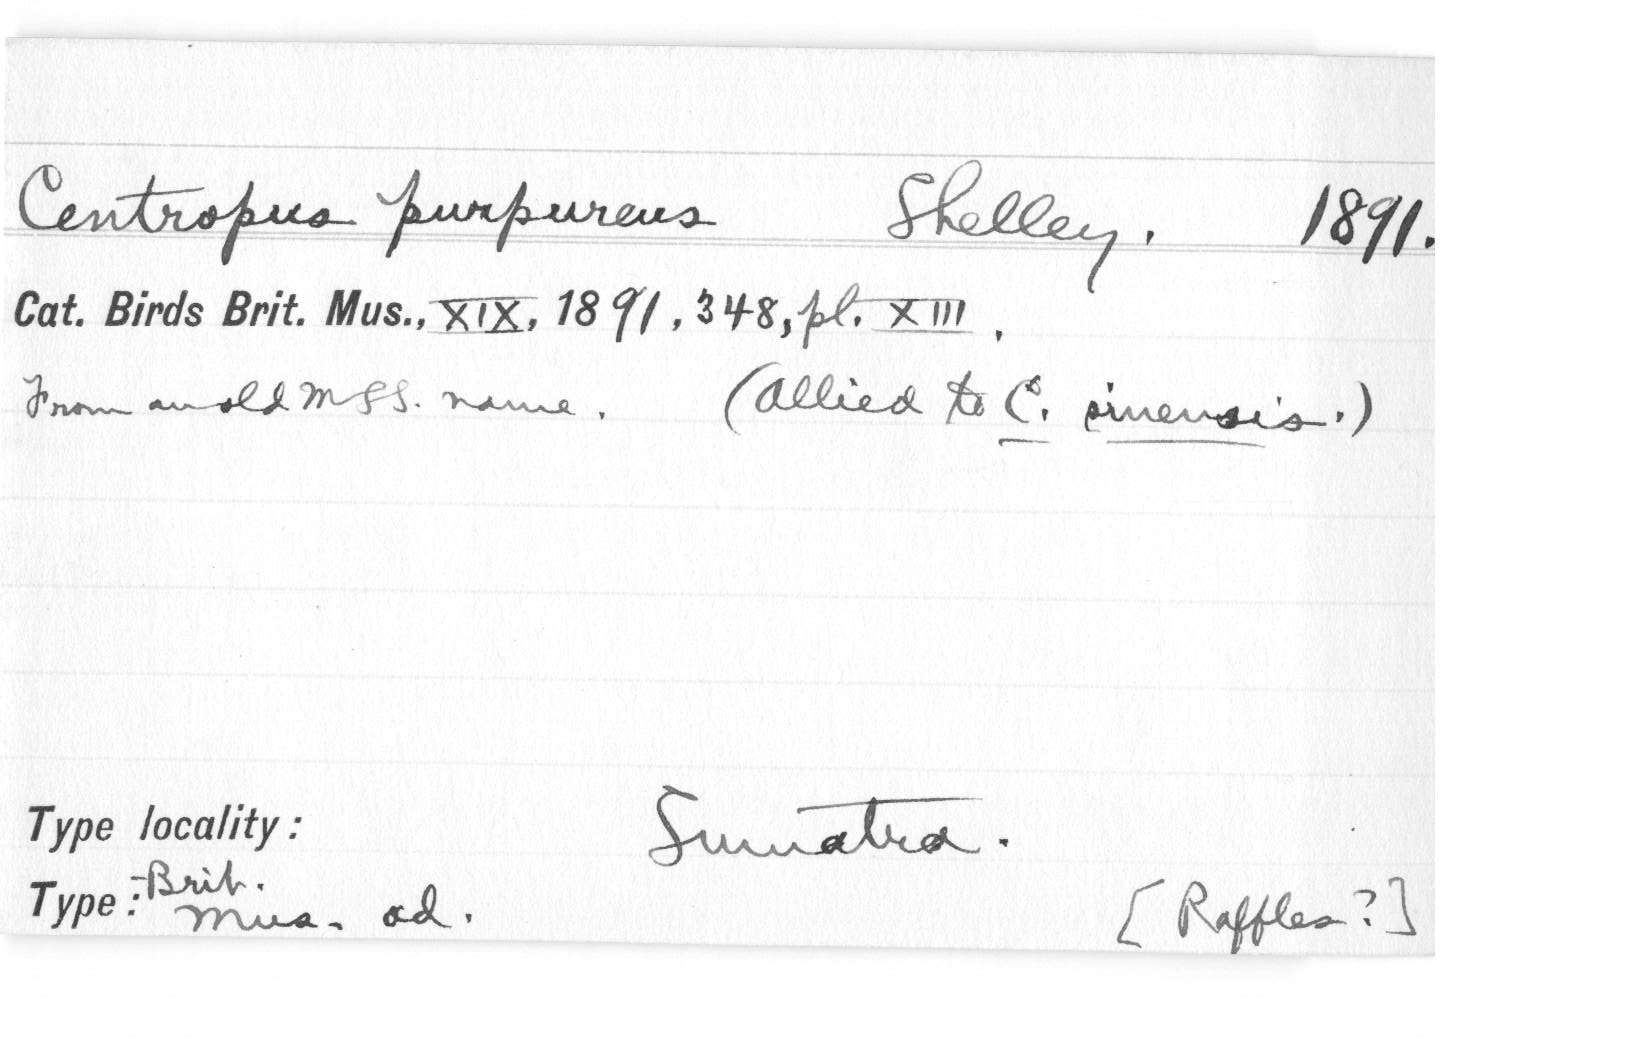 Centropus purpureus Shelley. 1891.
Cat. Birds Brit. Mus., XIX, 1891, 348, pl. XIII.
From an old MSS. name. (Allied to C. sinensis.)
Type locality: Sumatra.
Type: Brit. Mus. ad. [Raffles?]